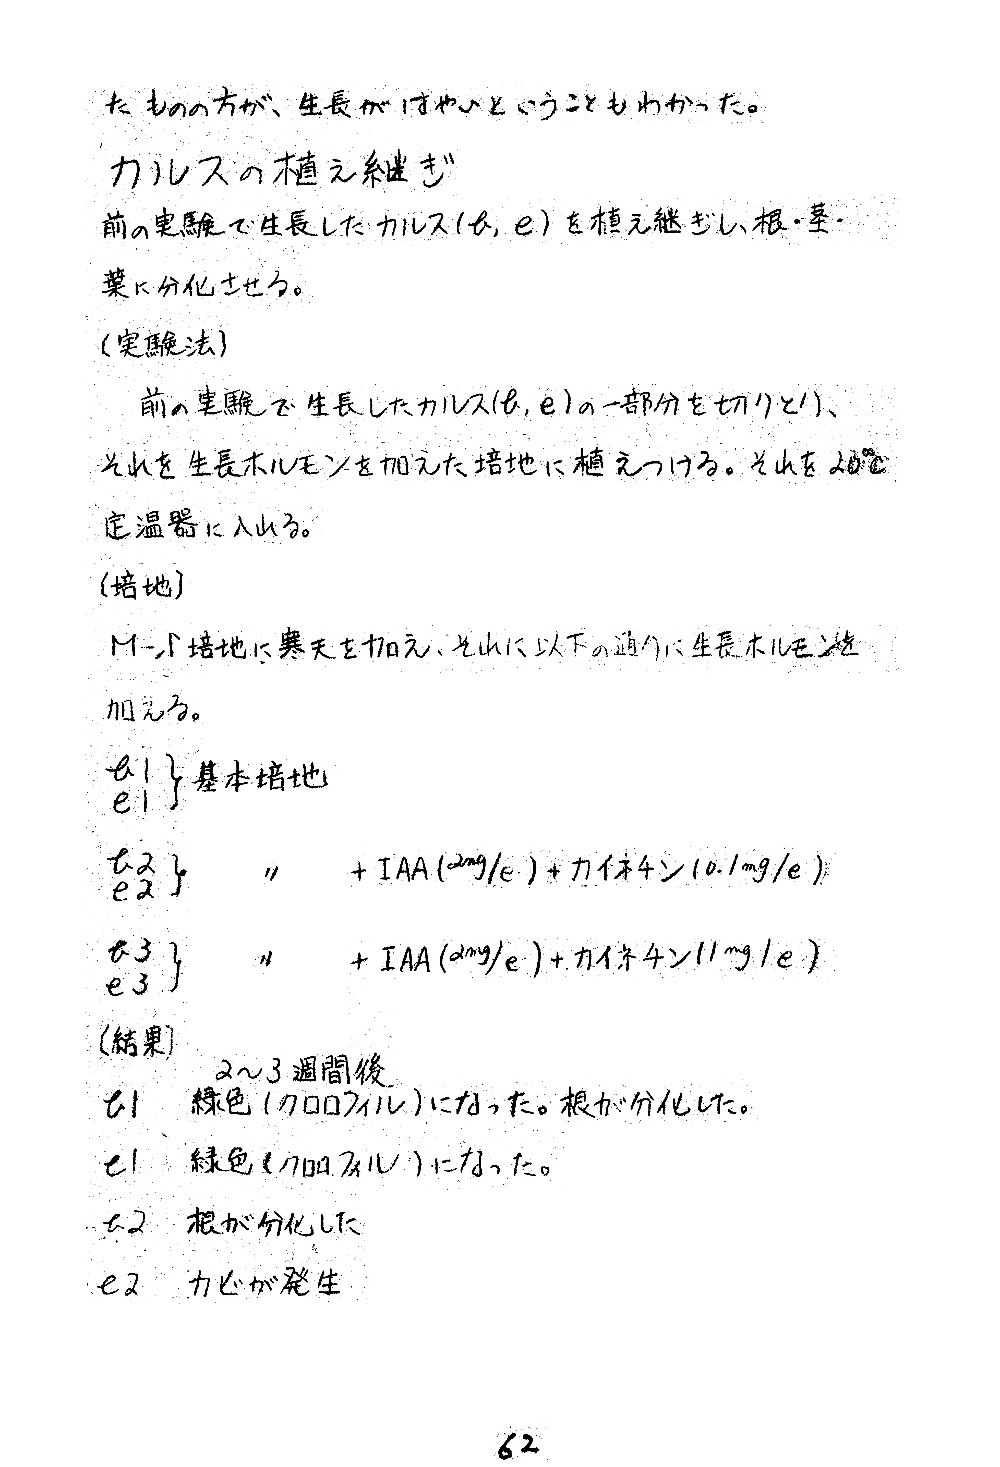 たものの方が、生長がはやいということもわかった。
カルスの植え継ぎ
前の実験で生長したカルス(b, e)を植え継ぎし、根・茎・
葉に分化させる。
(実験法)
前の実験で生長したカルス(b, e)の一部分を切りとり、
それを生長ホルモンを加えた培地に植えつける。それを20℃
定温器に入れる。
(培地)
M-S培地に寒天を加え、それに以下の通りに生長ホルモンを
加える。
b1
e1 } 基本培地
b2
e2 } 〃 + IAA(2mg/ℓ) + カイネチン(0.1mg/ℓ)
b3
e3 } 〃 + IAA(2mg/ℓ) + カイネチン(1mg/ℓ)
(結果)
2〜3週間後
b1 緑色(クロロフィル)になった。根が分化した。
e1 緑色(クロロフィル)になった。
b2 根が分化した
e2 カビが発生
62